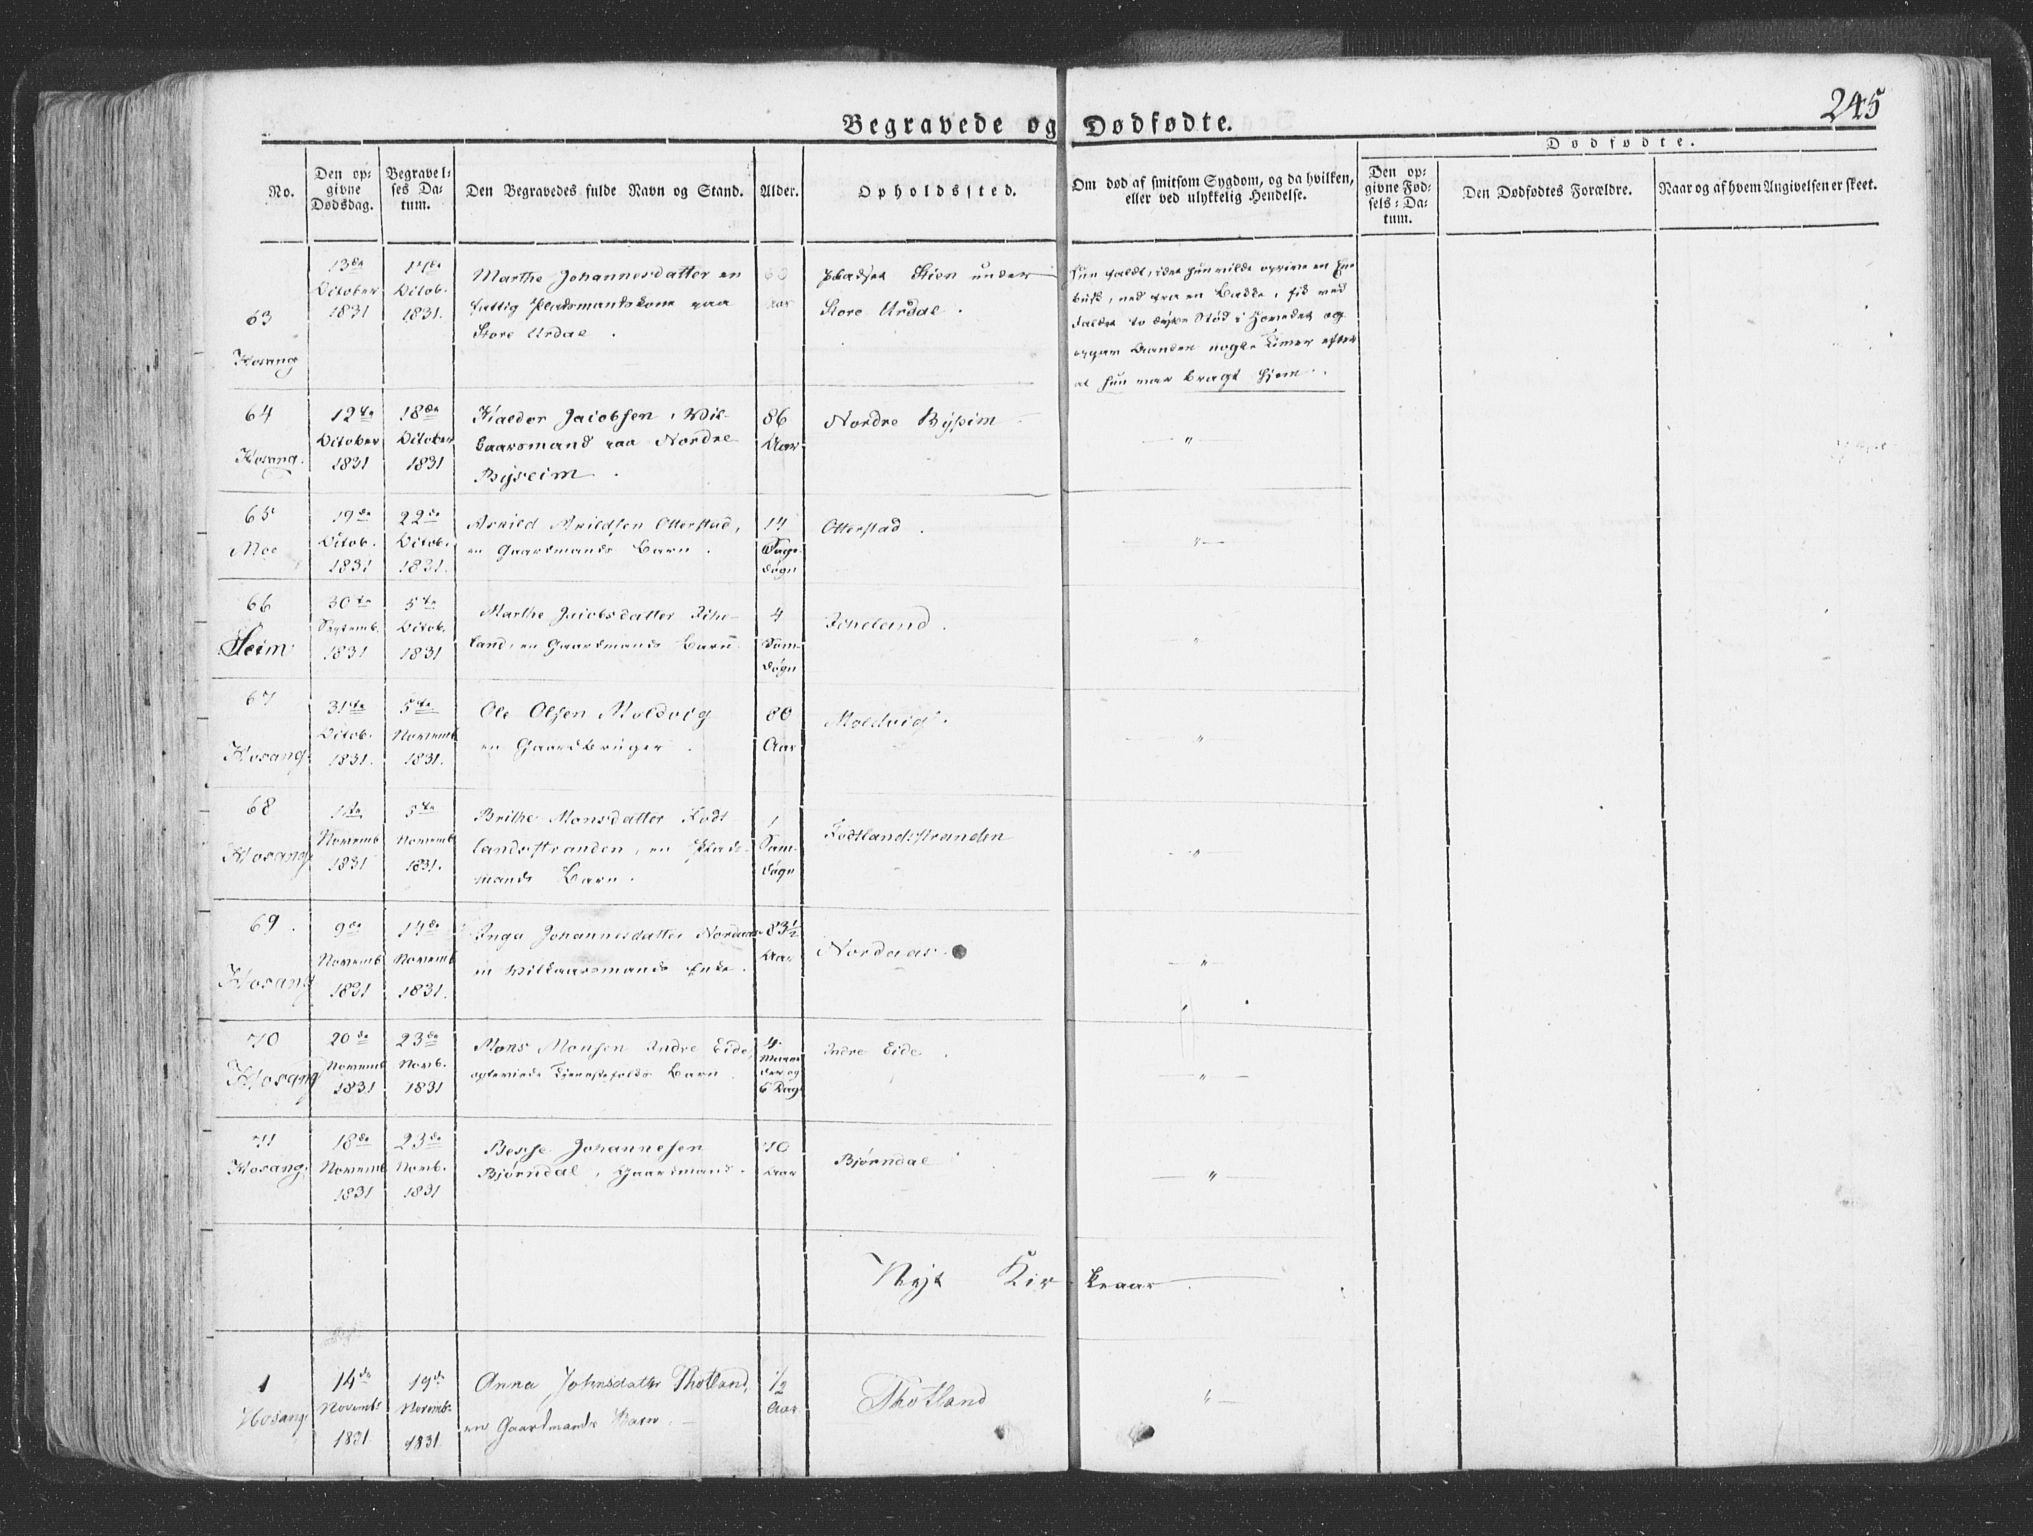 245
Begravede og Dødfødte.
No.
Den opgivne Dødsdag.
Begravelses Datum.
Den Begravedes fulde Navn og Stand.
Alder.
Opholdssted.
Om død af smitsom Sygdom, og da hvilken, eller ved ulykkelig Hendelse.
Dødfødte.
Den opgivne Fødsels-Datum.
Den Dødfødtes Forældre.
Naar og af hvem Angivelsen er skeet.
63 Hosang
13de October 1831
17de Octob. 1831.
Marthe Johannesdatter en
fattig Pladsmandskone paa
Store Urdal.
60 Aar
Pladset Stien under
Store Urdal.
Hun faldt, idet hun vilde oprive en
Busk, ned fra en Bakke, fik ved
Faldet to Stød i Hovedet og
opgav Aanden nogle Timer efter
at hun var bragt hjem.
64 Hosang.
12te October 1831
18de October 1831
Haldor Jacobsen, Vil-
kaarsmand paa Nordre
Byseim.
86 Aar
Nordre Byseim
— " —
65 Moe
19de Octob. 1831
22de Octob. 1831.
Arvild Arildsen Otterstad,
en Gaardmands Barn.
14 Dage døgn
Otterstad.
— " —
66 Seim
30te Septemb. 1831
5te Octob. 1831
Marthe Jacobsdatter
land, en Gaardmands Barn
4 Som døgn
"
67 Hosang.
31te Octob. 1831.
5te Novemb 1831.
Ole Olsen Moldvig
en Gaardbruger.
80 Aar
Moldvig.
— " —
68 Hosang.
1te Novemb 1831
5te Novemb 1831.
Brithe Monsdatter Fodt
landsstranden, en Plads-
mands Barn.
1 Døgn
Fodtlandsstranden
— " —
69. Hosang
9de Novemb 1831
14de Novemb 1831.
Inga Johannesdatter Nordaas
en Vilkaarsmands Enke.
83 1/2 Aar
Nordaas.
— " —
70 Hosang
20de Novemb 1831
23de Novb. 1831
Mons Monsen Indre Eide,
Tjenestefolks Barn.
4 Maaneder og 6 Dage
Indre Eide.
— " —
71 Hosang.
18de Novemb 1831
23de Novb. 1831
Johannesen
Bjørndal, Gaardmand.
70 Aar
Bjørndal
— " —
Nyt Kirkeaar.
1 Hosang
14de Novembr 1831.
19de Novemb. 1831
Anna Johnsdatter Thotland,
en Gaardmands Barn.
1/2 Aar
Thotland
— " —